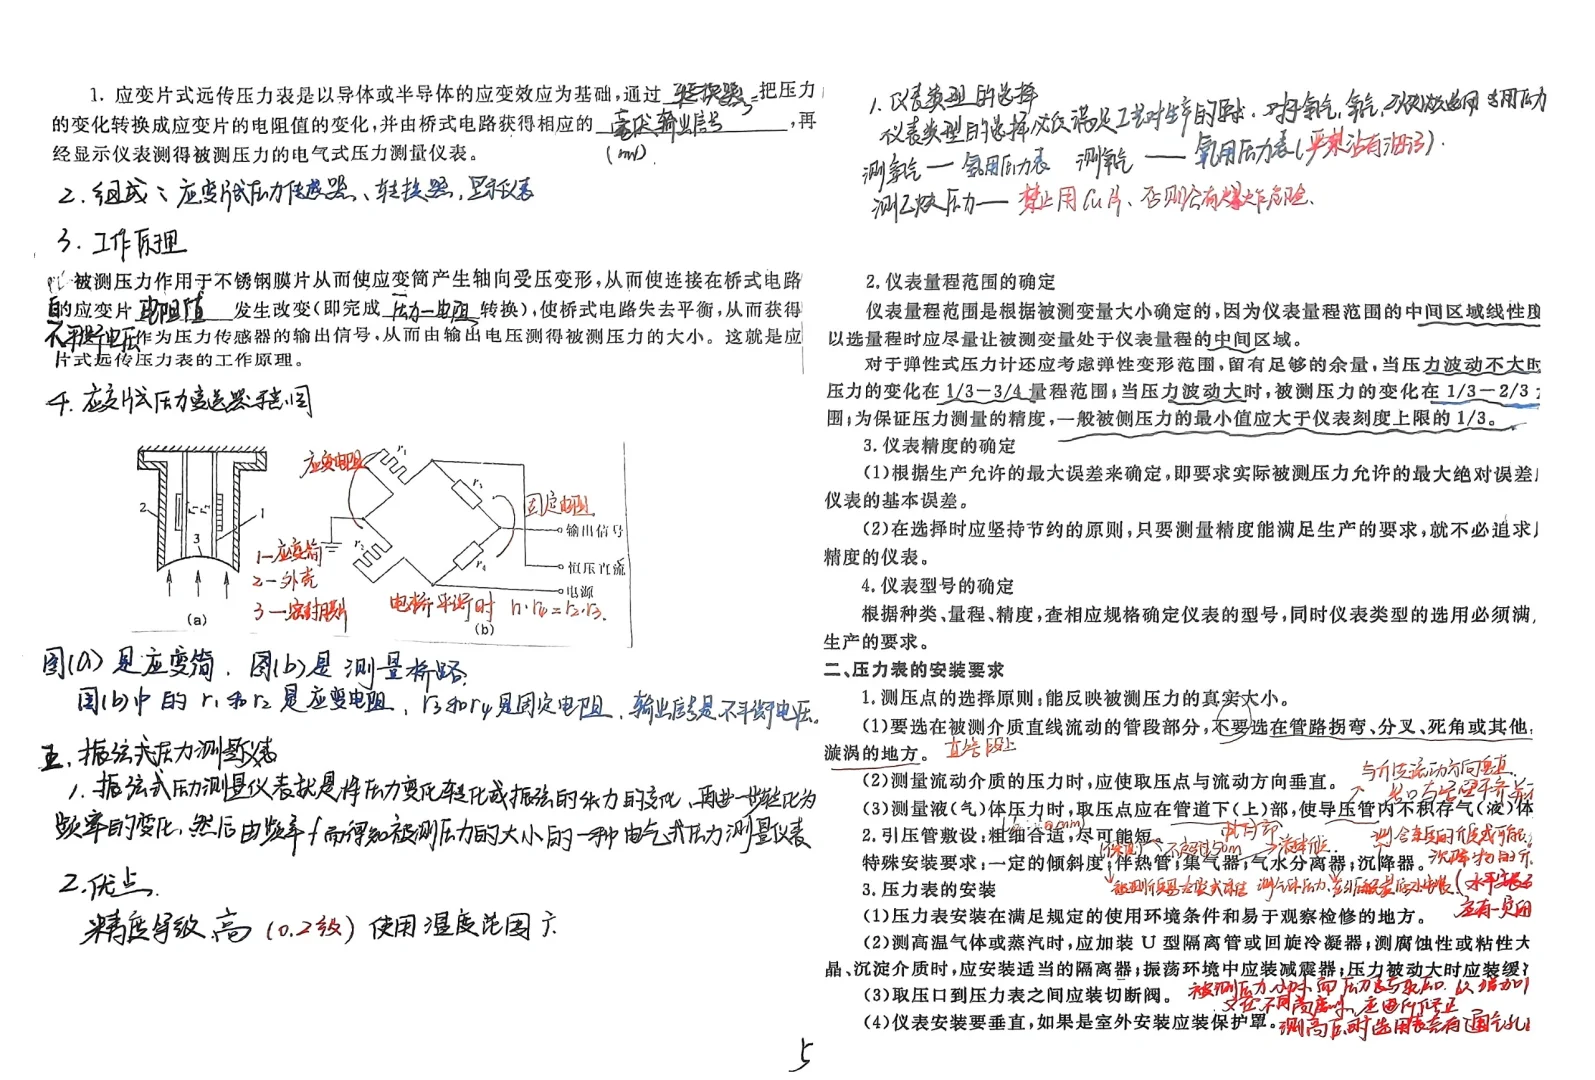 1. 应变片式远传压力表是以导体或半导体的应变效应为基础,通过 转换器 把压力
的变化转换成应变片的电阻值的变化,并由桥式电路获得相应的 毫伏输出信号 ,再
(mv)
经显示仪表测得被测压力的电气式压力测量仪表。
2. 组成:应变片式压力传感器、转换器、显示仪表
3. 工作原理
被测压力作用于不锈钢膜片从而使应变筒产生轴向受压变形,从而使连接在桥式电路
的应变片 电阻值 发生改变(即完成 压力—电阻 转换),使桥式电路失去平衡,从而获得
不平衡电压作为压力传感器的输出信号,从而由输出电压测得被测压力的大小。这就是应
片式远传压力表的工作原理。
4. 应变片式压力变送器示意图
应变电阻
r1
r3
固定电阻
输出信号
2
1
3
r1
r2
r2
r4
恒压直流
电源
1—应变筒
2—外壳
3—密封膜片
电桥平衡时 r1·r4=r2·r3.
(a)
(b)
图(a)是应变筒,图(b)是测量桥路.
图(b)中的r1和r2是应变电阻,r3和r4是固定电阻,输出信号是不平衡电压。
五、振弦式压力测量仪表
1. 振弦式压力测量仪表就是将压力变化转化成振弦的张力的变化,再进一步转化为
频率的变化,然后由频率f而得知被测压力的大小的一种电气式压力测量仪表
2. 优点.
精度等级高(0.2级) 使用温度范围广
1. 仪表类型的选择
仪表类型的选择必须满足工艺对生产的要求.对于氧气,氨气,乙炔应选用专用压力
测氨气—氨用压力表 测氧气—氧用压力表(严禁沾有油污).
测乙炔压力—禁止用Cu片、否则会有爆炸危险、
2. 仪表量程范围的确定
仪表量程范围是根据被测变量大小确定的,因为仪表量程范围的中间区域线性度
以选量程时应尽量让被测变量处于仪表量程的中间区域。
对于弹性式压力计还应考虑弹性变形范围,留有足够的余量,当压力波动不大时
压力的变化在 1/3—3/4 量程范围;当压力波动大时,被测压力的变化在 1/3—2/3
围;为保证压力测量的精度,一般被侧压力的最小值应大于仪表刻度上限的 1/3。
3. 仪表精度的确定
(1)根据生产允许的最大误差来确定,即要求实际被测压力允许的最大绝对误差
仪表的基本误差。
(2)在选择时应坚持节约的原则,只要测量精度能满足生产的要求,就不必追求
精度的仪表。
4. 仪表型号的确定
根据种类、量程、精度,查相应规格确定仪表的型号,同时仪表类型的选用必须满,
生产的要求。
二、压力表的安装要求
1. 测压点的选择原则:能反映被测压力的真实大小。
(1)要选在被测介质直线流动的管段部分,不要选在管路拐弯、分叉、死角或其他
漩涡的地方。 直管段上
与介质流动方向垂直,
(2)测量流动介质的压力时,应使取压点与流动方向垂直。
(3)测量液(气)体压力时,取压点应在管道下(上)部,使导压管内不积存气(液)体
2. 引压管敷设:粗细合适,尽可能短、
不超过50m
特殊安装要求:一定的倾斜度;伴热管;集气器;气水分离器;沉降器。
3. 压力表的安装
(1)压力表安装在满足规定的使用环境条件和易于观察检修的地方。
(2)测高温气体或蒸汽时,应加装 U 型隔离管或回旋冷凝器;测腐蚀性或粘性大
晶、沉淀介质时,应安装适当的隔离器;振荡环境中应装减震器;压力被动大时应装缓
(3)取压口到压力表之间应装切断阀。 被测压力小时
(4)仪表安装要垂直,如果是室外安装应装保护罩。
测高压时选用表壳有通气孔
5